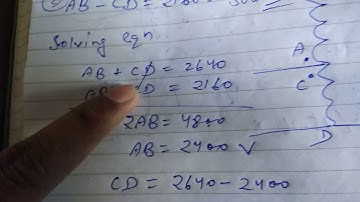 AB - CD = 2160
Solving eqn
AB + CD = 2640
A
D = 2160
C
2AB = 4800
AB = 2400 ✓
D
CD = 2640 - 2400